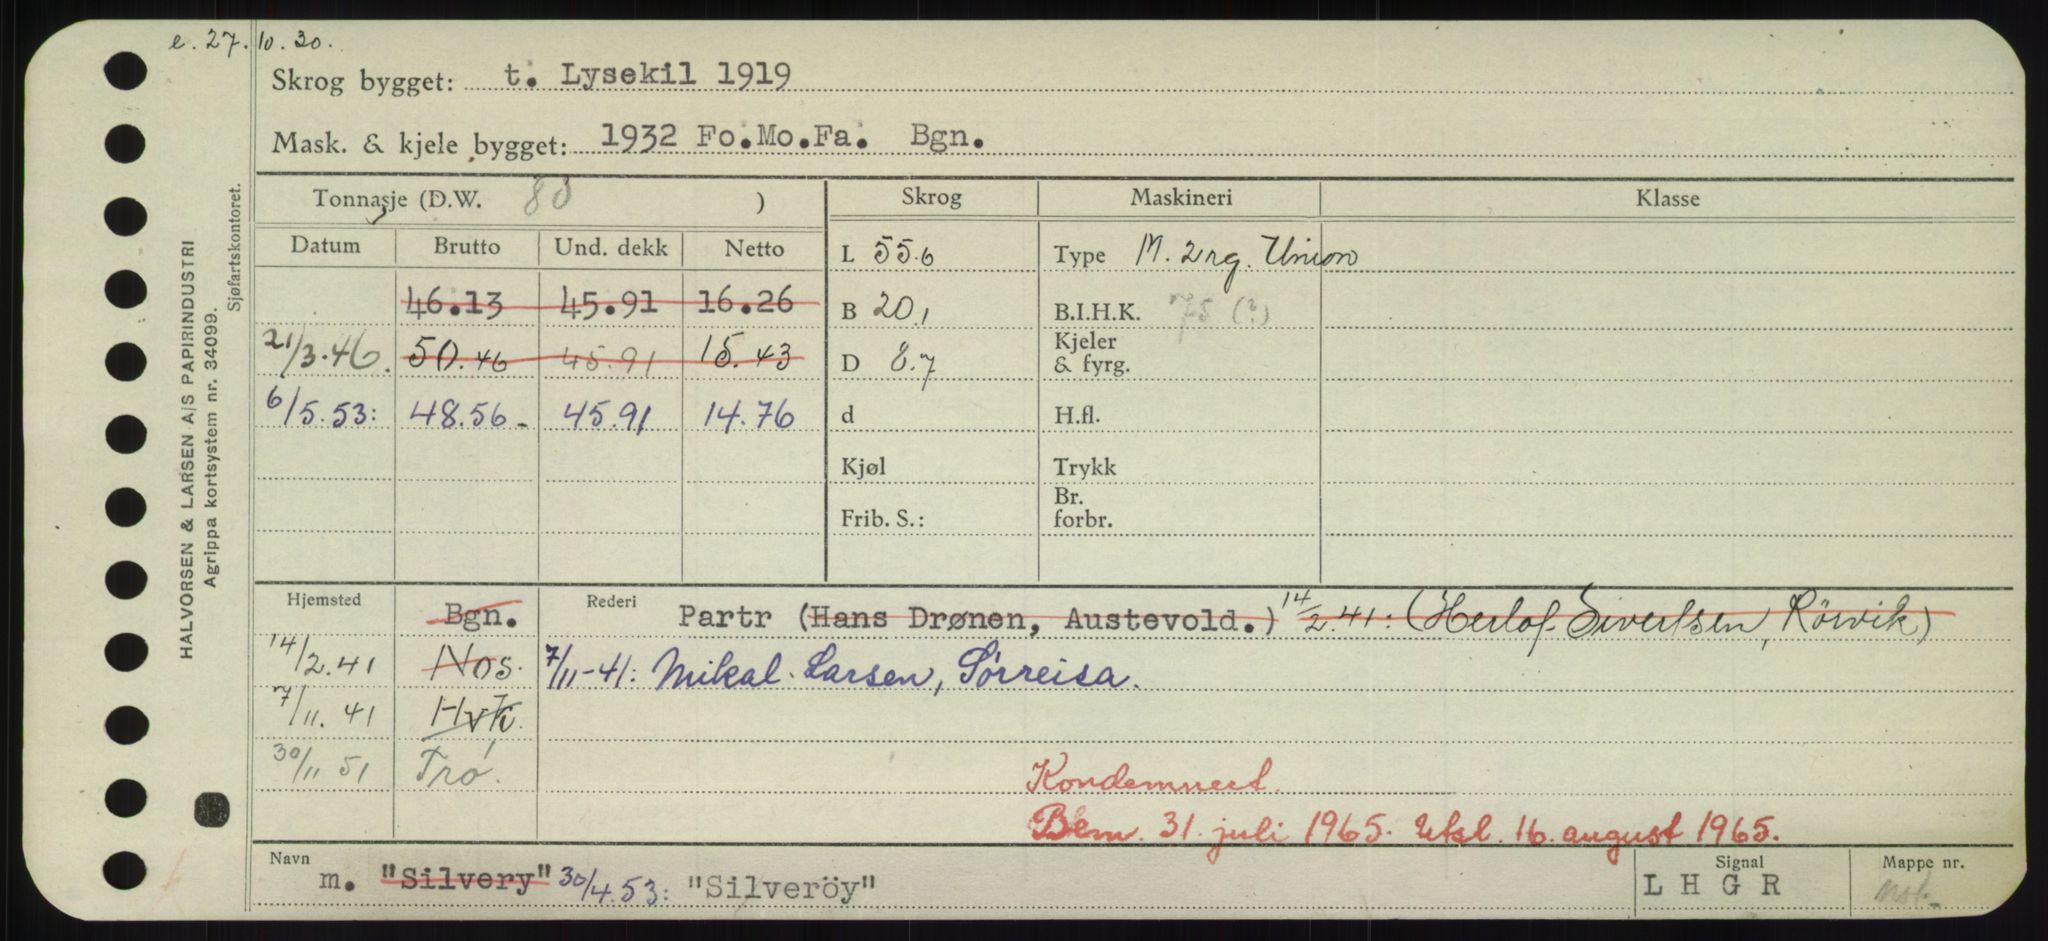 e. 27.10.30.
Skrog bygget: t. Lysekil 1919
Mask. & kjele bygget: 1932 Fo.Mo.Fa. Bgn.
Tonnasje (D.W. 80 ) Skrog Maskineri Klasse
Datum Brutto Und. dekk Netto L 55.6 Type M. 2rg. Union
46.13 45.91 16.26 B 20,1 B.I.H.K. 75 (?)
21/3.46. 50.46 45.91 15.43 D 8.7 Kjeler & fyrg.
6/5.53: 48.56 45.91 14.76 d H.fl.
Kjøl Trykk
Frib. S.: Br. forbr.
Hjemsted Bgn. Rederi Partr (Hans Drønen, Austevold.) 14/2.41: (Herlof Sivertsen, Rörvik)
14/2.41 Nos. 7/11-41: Mikal Larsen, Sørreisa.
7/11.41 Hvk.
30/11 51 Trö. Kondemnert.
Bem. 31. juli 1965. Utsl. 16. august 1965.
Navn m. "Silvery" 30/4.53: "Silveröy" Signal LHGR Mappe nr.
HALVORSEN & LARSEN A/S PAPIRINDUSTRI
Agrippa kortsystem nr. 34099.
Sjøfartskontoret.